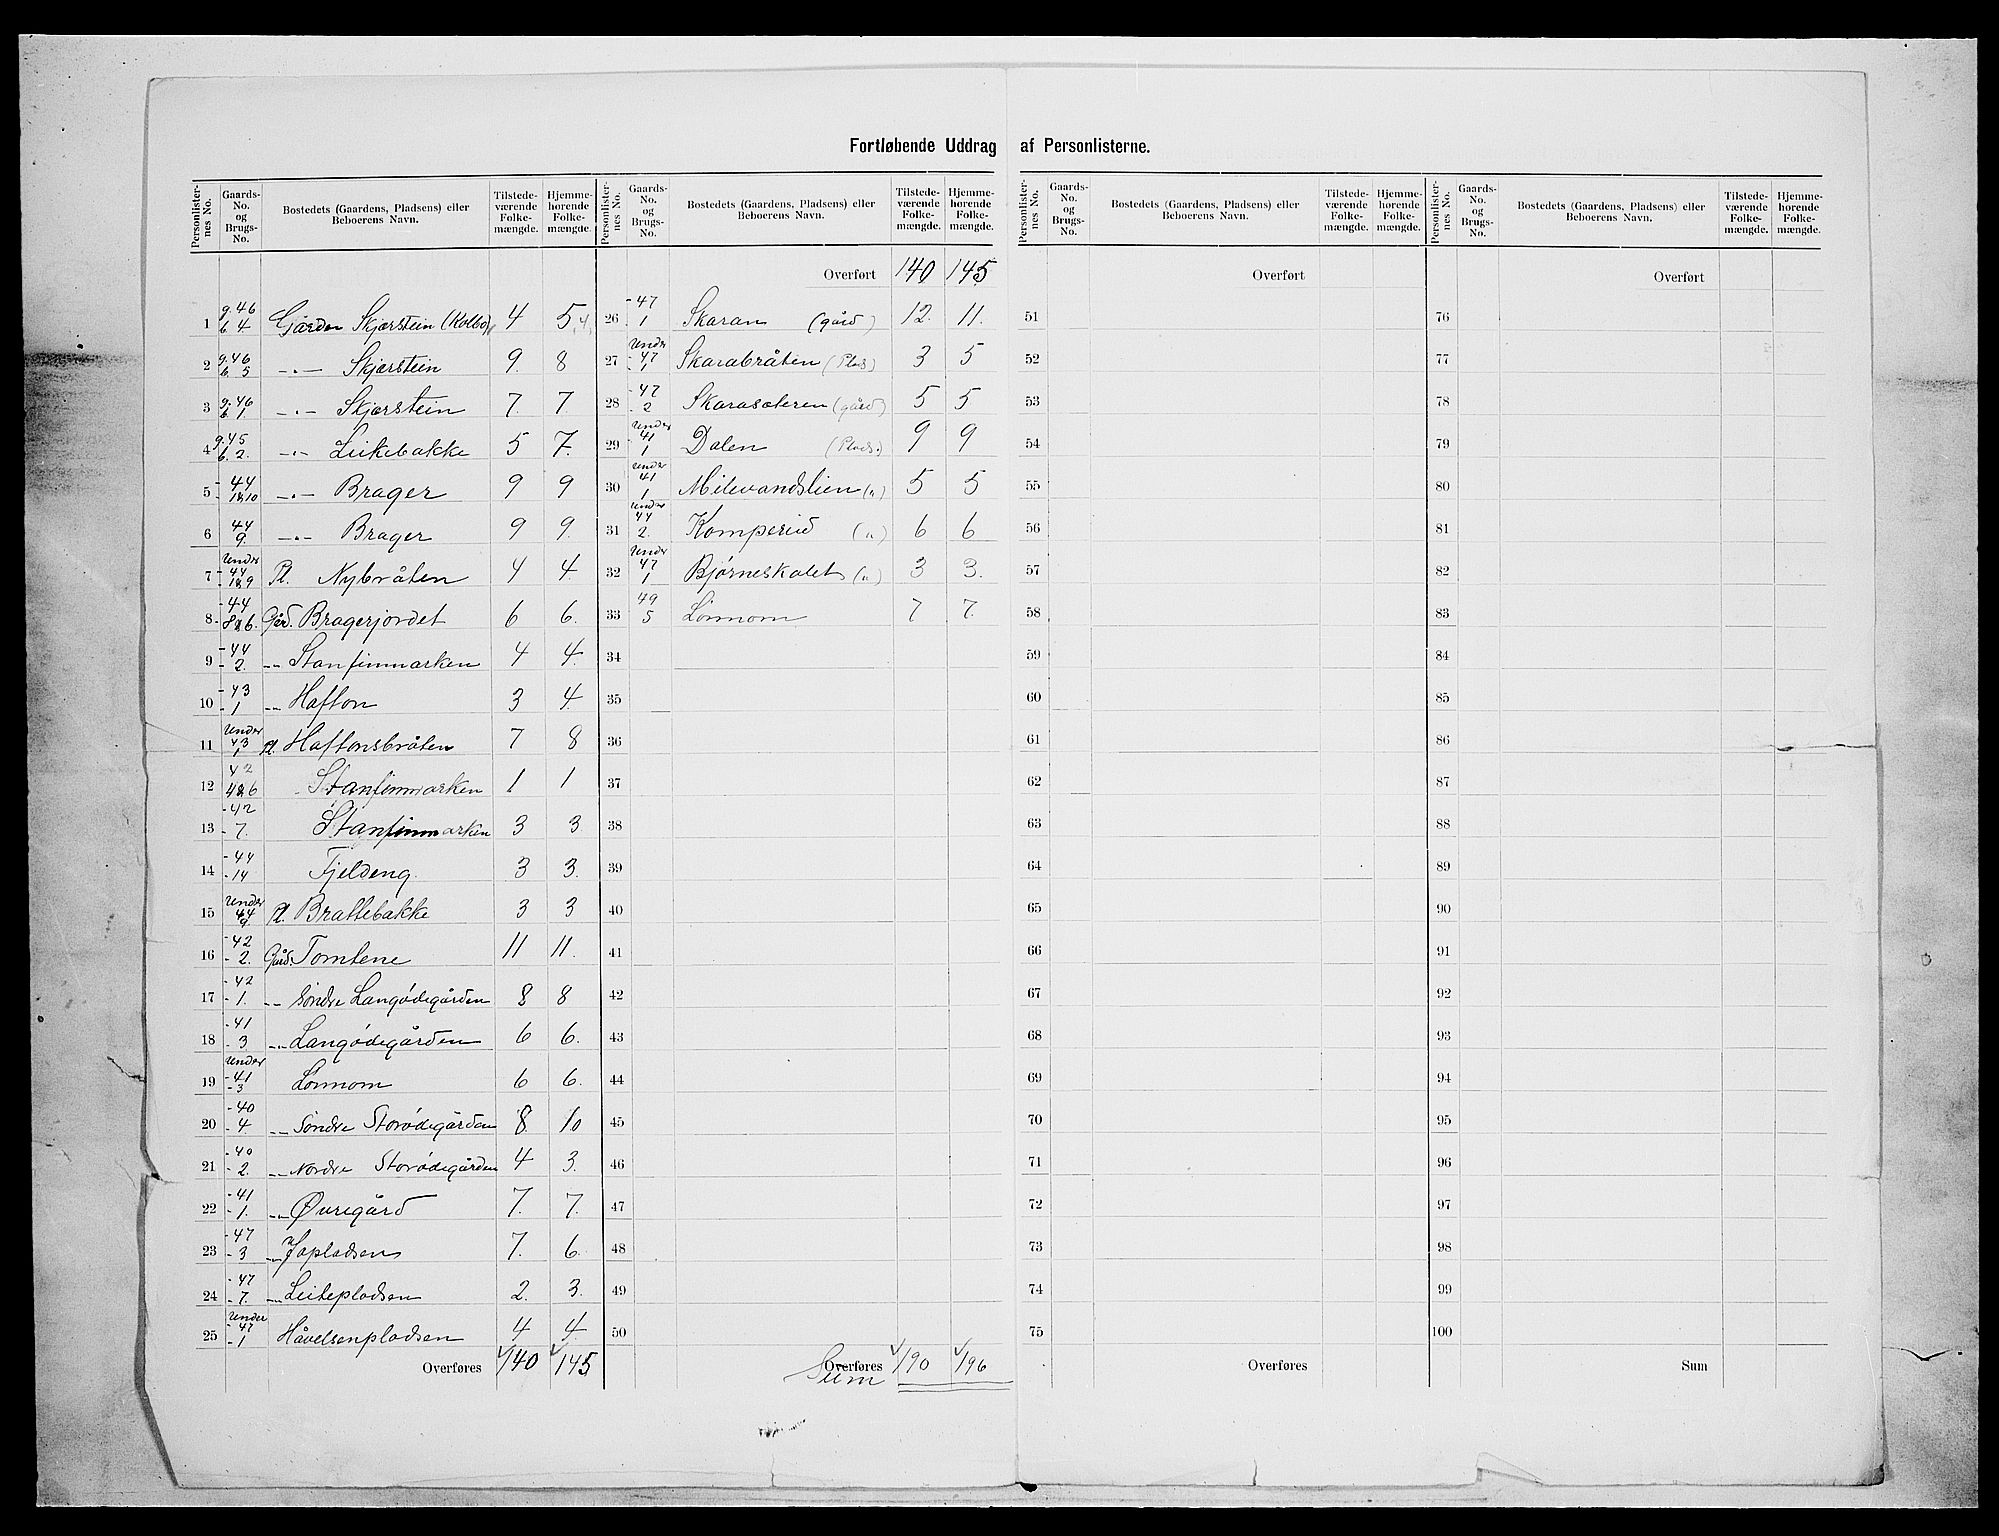 Fortløbende Uddrag af Personlisterne.
Personlisternes No. | Gaards-No. og Brugs-No. | Bostedets (Gaardens, Pladsens) eller Beboerens Navn. | Tilstedeværende Folkemængde. | Hjemmehørende Folkemængde.
1 | g. 46 b. 4 | Gården Skjærstein (Kolbo) | 4 | 5
2 | g. 46 b. 5 | -"- Skjærstein | 9. | 8
3 | g. 46 b. 1 | -"- Skjærstein | 7. | 7.
4 | g. 45 b. 2. | -"- Leikebakke | 5 | 7.
5 | -44 - 1&10 | -"- Brager | 9 | 9
6 | 44 9. | -"- Brager | 9 | 9.
7 | Under -44 - 1&9 | Pl. Nybråten | 4 | 4.
8 | -44 - 8&6. | Gård. Bragerjordet | 6 | 6.
9 | -44 -2. | -"- Stanfinmarken | 4 | 4.
10 | -43 -1 | -"- Hafton | 3 | 4.
11 | Under 43 1 | Pl. Haftonsbråten | 7 | 8
12 | 42 4&6 | Stanfinmarken | 1 | 1
13 | -42 -7. | Stanfinmarken | 3 | 3
14 | -44 -14 | Fjeldeng. | 3 | 3.
15 | Under 44 9. | Pl. Brattebakke | 3 | 3
16 | -42 -2. | Gård. Tomtene | 11 | 11.
17 | -42 -1. | -"- Søndre Langødegården | 8 | 8
18 | -41 -3 | -"- Langødegården | 6 | 6.
19 | Under -41 -3 | Lønnom | 6 | 6.
20 | -40 -4 | -"- Søndre Storødegården | 8. | 10
21 | -40 -2. | -"- Nordre Storødegården | 4 | 3.
22 | -41 -1. | -"- Øvregård | 7. | 7.
23 | -47 -3 | -"- Japladsen | 7. | 6.
24 | -47 -7. | -"- Leitepladsen | 2. | 3.
25 | Under -47 -1 | Håvelsenpladsen | 4 | 4
Overføres | 140 | 145
Personlisternes No. | Gaards-No. og Brugs-No. | Bostedets (Gaardens, Pladsens) eller Beboerens Navn. | Tilstedeværende Folkemængde. | Hjemmehørende Folkemængde.
Overført | 140 | 145
26 | -47 1 | Skaran (gård) | 12. | 11.
27 | Under -47 1 | Skarabråten (Plads) | 3 | 5
28 | -47 -2 | Skarasæteren (gård) | 5 | 5
29 | Under -41 1 | Dalen (Plads.) | 9 | 9
30 | Under 41 1 | Milevandslien (") | 5 | 5
31 | Under 44 2. | Komperud (") | 6 | 6
32 | Under 47 1 | Bjørneskalet (") | 3 | 3.
33 | 49 5 | Lønnom | 7 | 7.
34
35
36
37
38
39
40
41
42
43
44
45
46
47
48
49
50
Overføres Sum | 190 | 196
Personlisternes No. | Gaards-No. og Brugs-No. | Bostedets (Gaardens, Pladsens) eller Beboerens Navn. | Tilstedeværende Folkemængde. | Hjemmehørende Folkemængde.
Overført
51
52
53
54
55
56
57
58
59
60
61
62
63
64
65
66
67
68
69
70
71
72
73
74
75
Overføres
Personlisternes No. | Gaards-No. og Brugs-No. | Bostedets (Gaardens, Pladsens) eller Beboerens Navn. | Tilstedeværende Folkemængde. | Hjemmehørende Folkemængde.
Overført
76
77
78
79
80
81
82
83
84
85
86
87
88
89
90
91
92
93
94
95
96
97
98
99
100
Sum